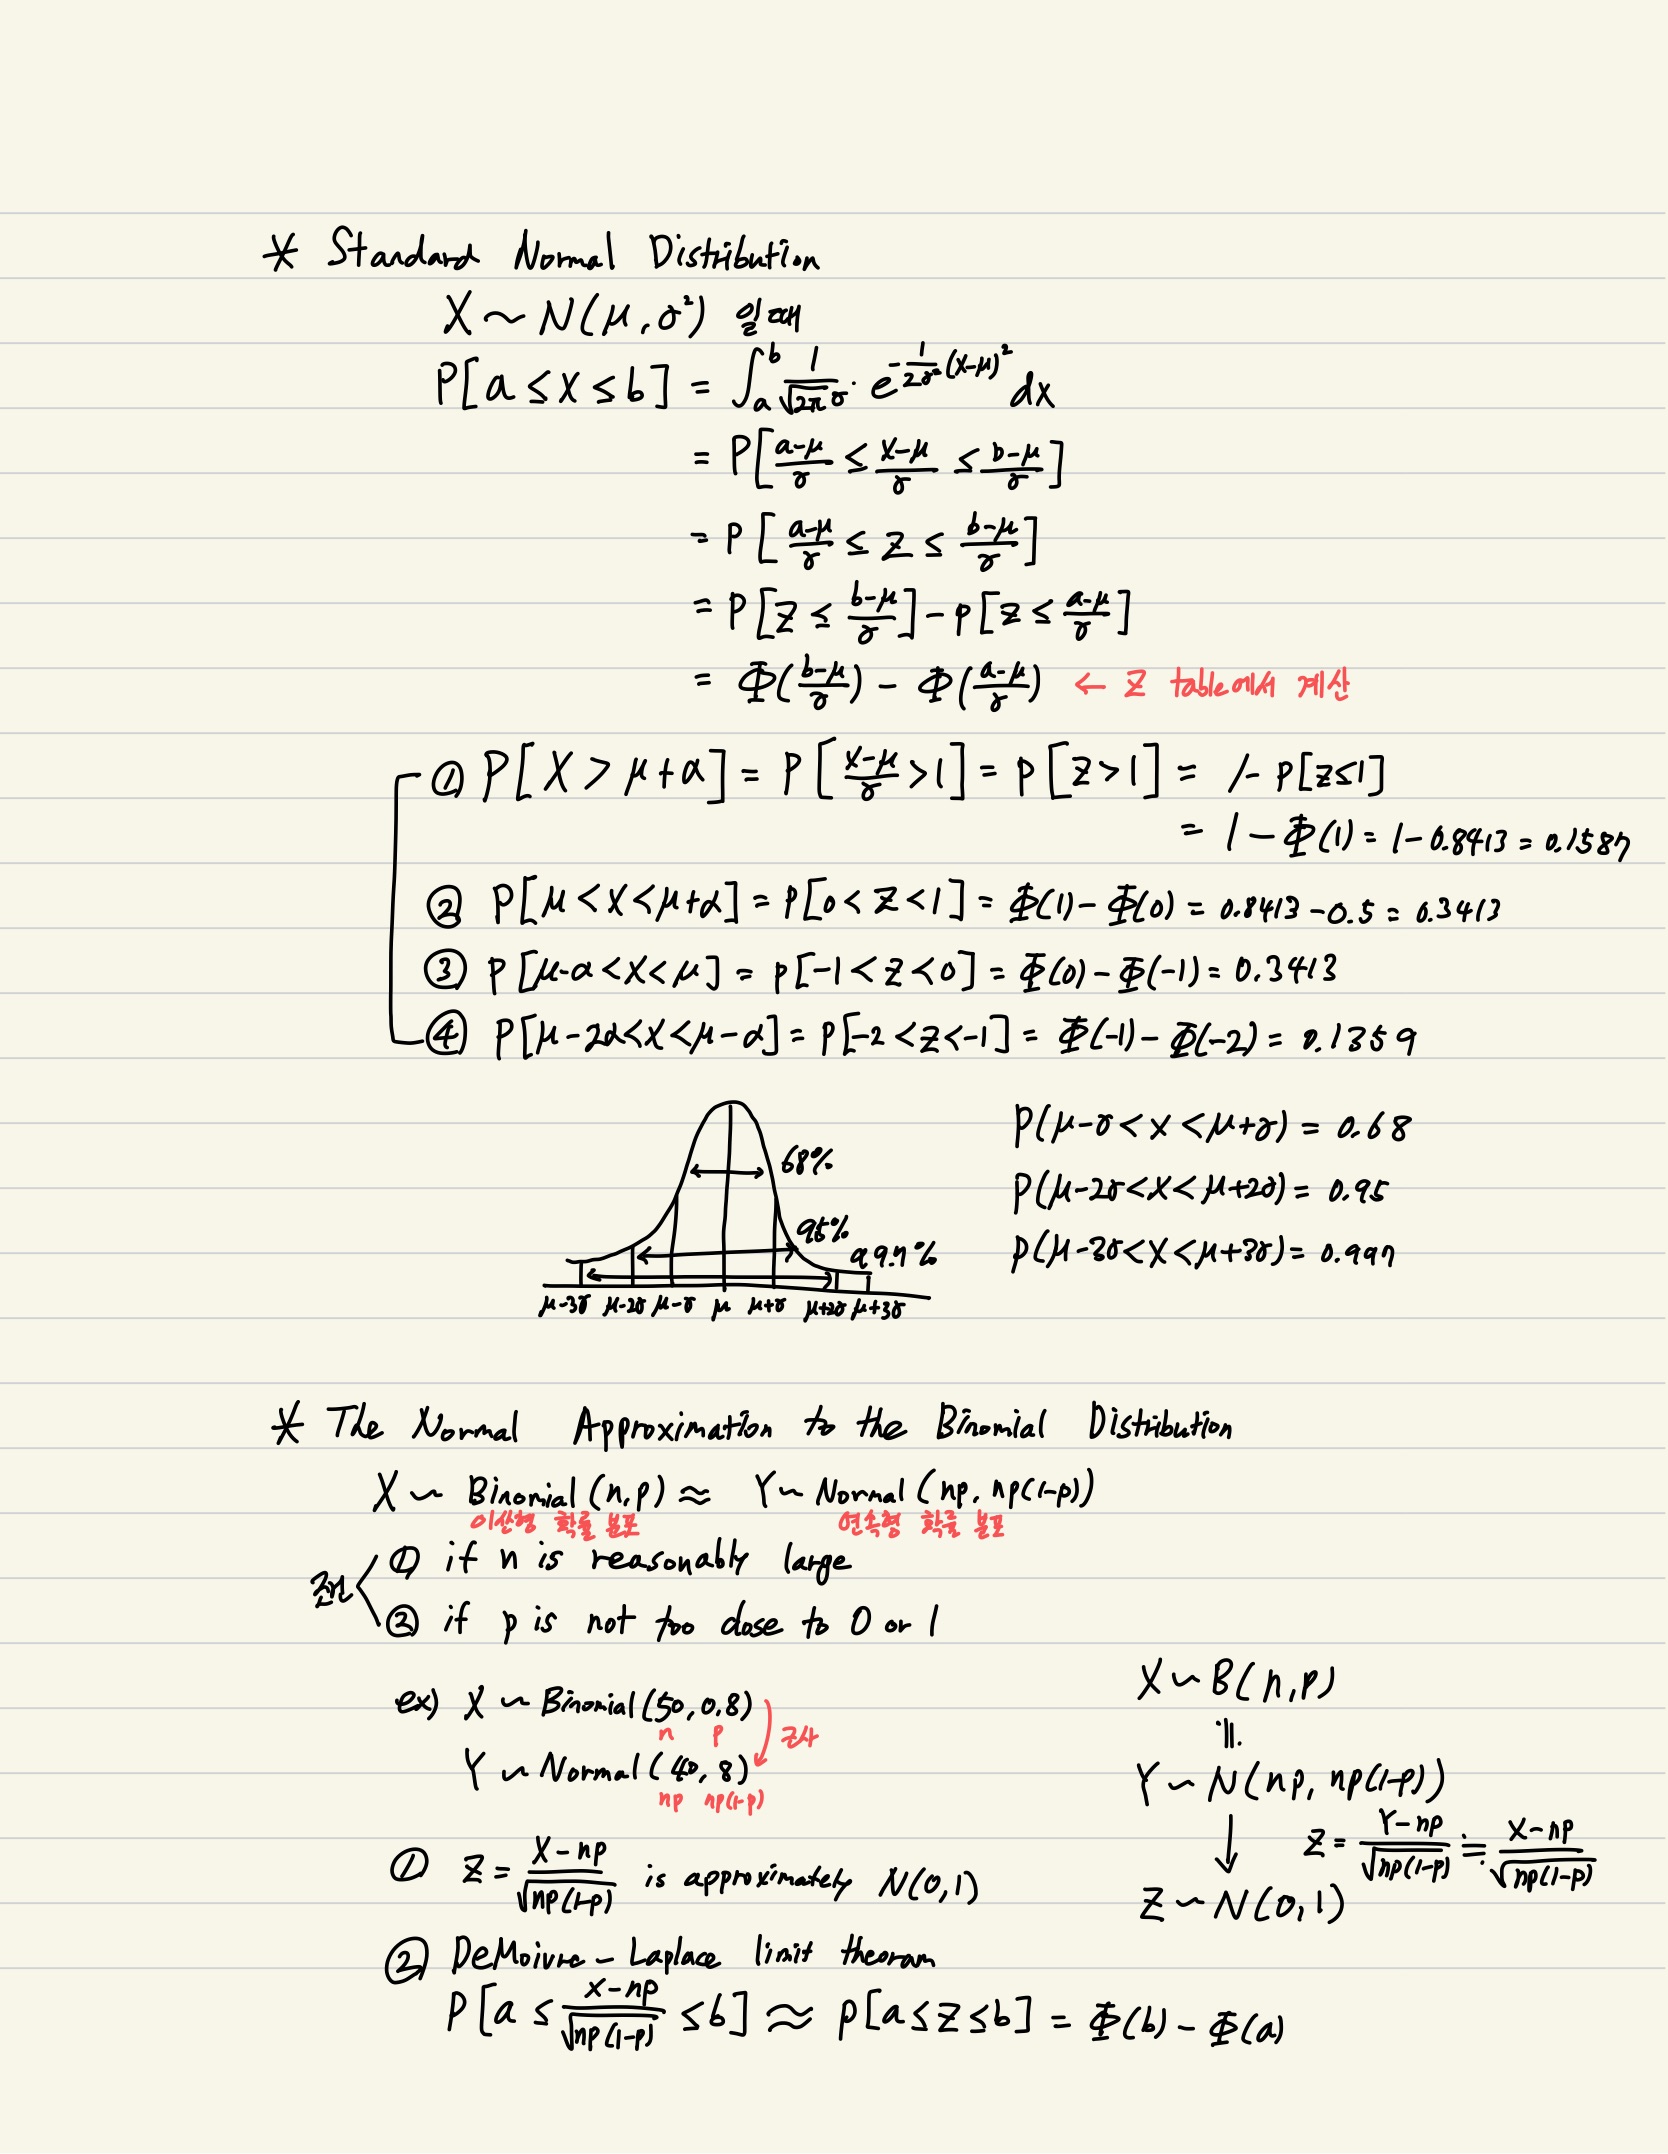 * Standard Normal Distribution
X ~ N(μ, σ²) 일때
P[a ≤ X ≤ b] = ∫ₐᵇ 1/(√2π σ) · e^(-1/(2σ²) (x-μ)²) dx
= P[(a-μ)/σ ≤ (X-μ)/σ ≤ (b-μ)/σ]
= P[(a-μ)/σ ≤ Z ≤ (b-μ)/σ]
= P[Z ≤ (b-μ)/σ] - P[Z ≤ (a-μ)/σ]
= Φ((b-μ)/σ) - Φ((a-μ)/σ) ← Z table에서 계산
① P[X > μ+α] = P[(X-μ)/σ > 1] = P[Z > 1] = 1- P[Z ≤ 1]
= 1 - Φ(1) = 1 - 0.8413 = 0.1587
② P[μ < X < μ+α] = P[0 < Z < 1] = Φ(1) - Φ(0) = 0.8413 - 0.5 = 0.3413
③ P[μ-α < X < μ] = P[-1 < Z < 0] = Φ(0) - Φ(-1) = 0.3413
④ P[μ-2α < X < μ-α] = P[-2 < Z < -1] = Φ(-1) - Φ(-2) = 0.1359
68%
95%
99.7%
μ-3σ μ-2σ μ-σ μ μ+σ μ+2σ μ+3σ
P(μ-σ < X < μ+σ) = 0.68
P(μ-2σ < X < μ+2σ) = 0.95
P(μ-3σ < X < μ+3σ) = 0.997
* The Normal Approximation to the Binomial Distribution
X ~ Binomial (n, p) ≈ Y ~ Normal (np, np(1-p))
이산형 확률 분포 연속형 확률 분포
조건
① if n is reasonably large
② if p is not too close to 0 or 1
ex) X ~ Binomial (50, 0.8)
n p 근사
Y ~ Normal (40, 8)
np np(1-p)
① Z = (X-np)/√(np(1-p)) is approximately N(0, 1)
② DeMoivre - Laplace limit theoram
P[a ≤ (X-np)/√(np(1-p)) ≤ b] ≈ P[a ≤ Z ≤ b] = Φ(b) - Φ(a)
X ~ B(n, p)
≒
Y ~ N(np, np(1-p))
↓ Z = (Y-np)/√(np(1-p)) ≒ (X-np)/√(np(1-p))
Z ~ N(0, 1)